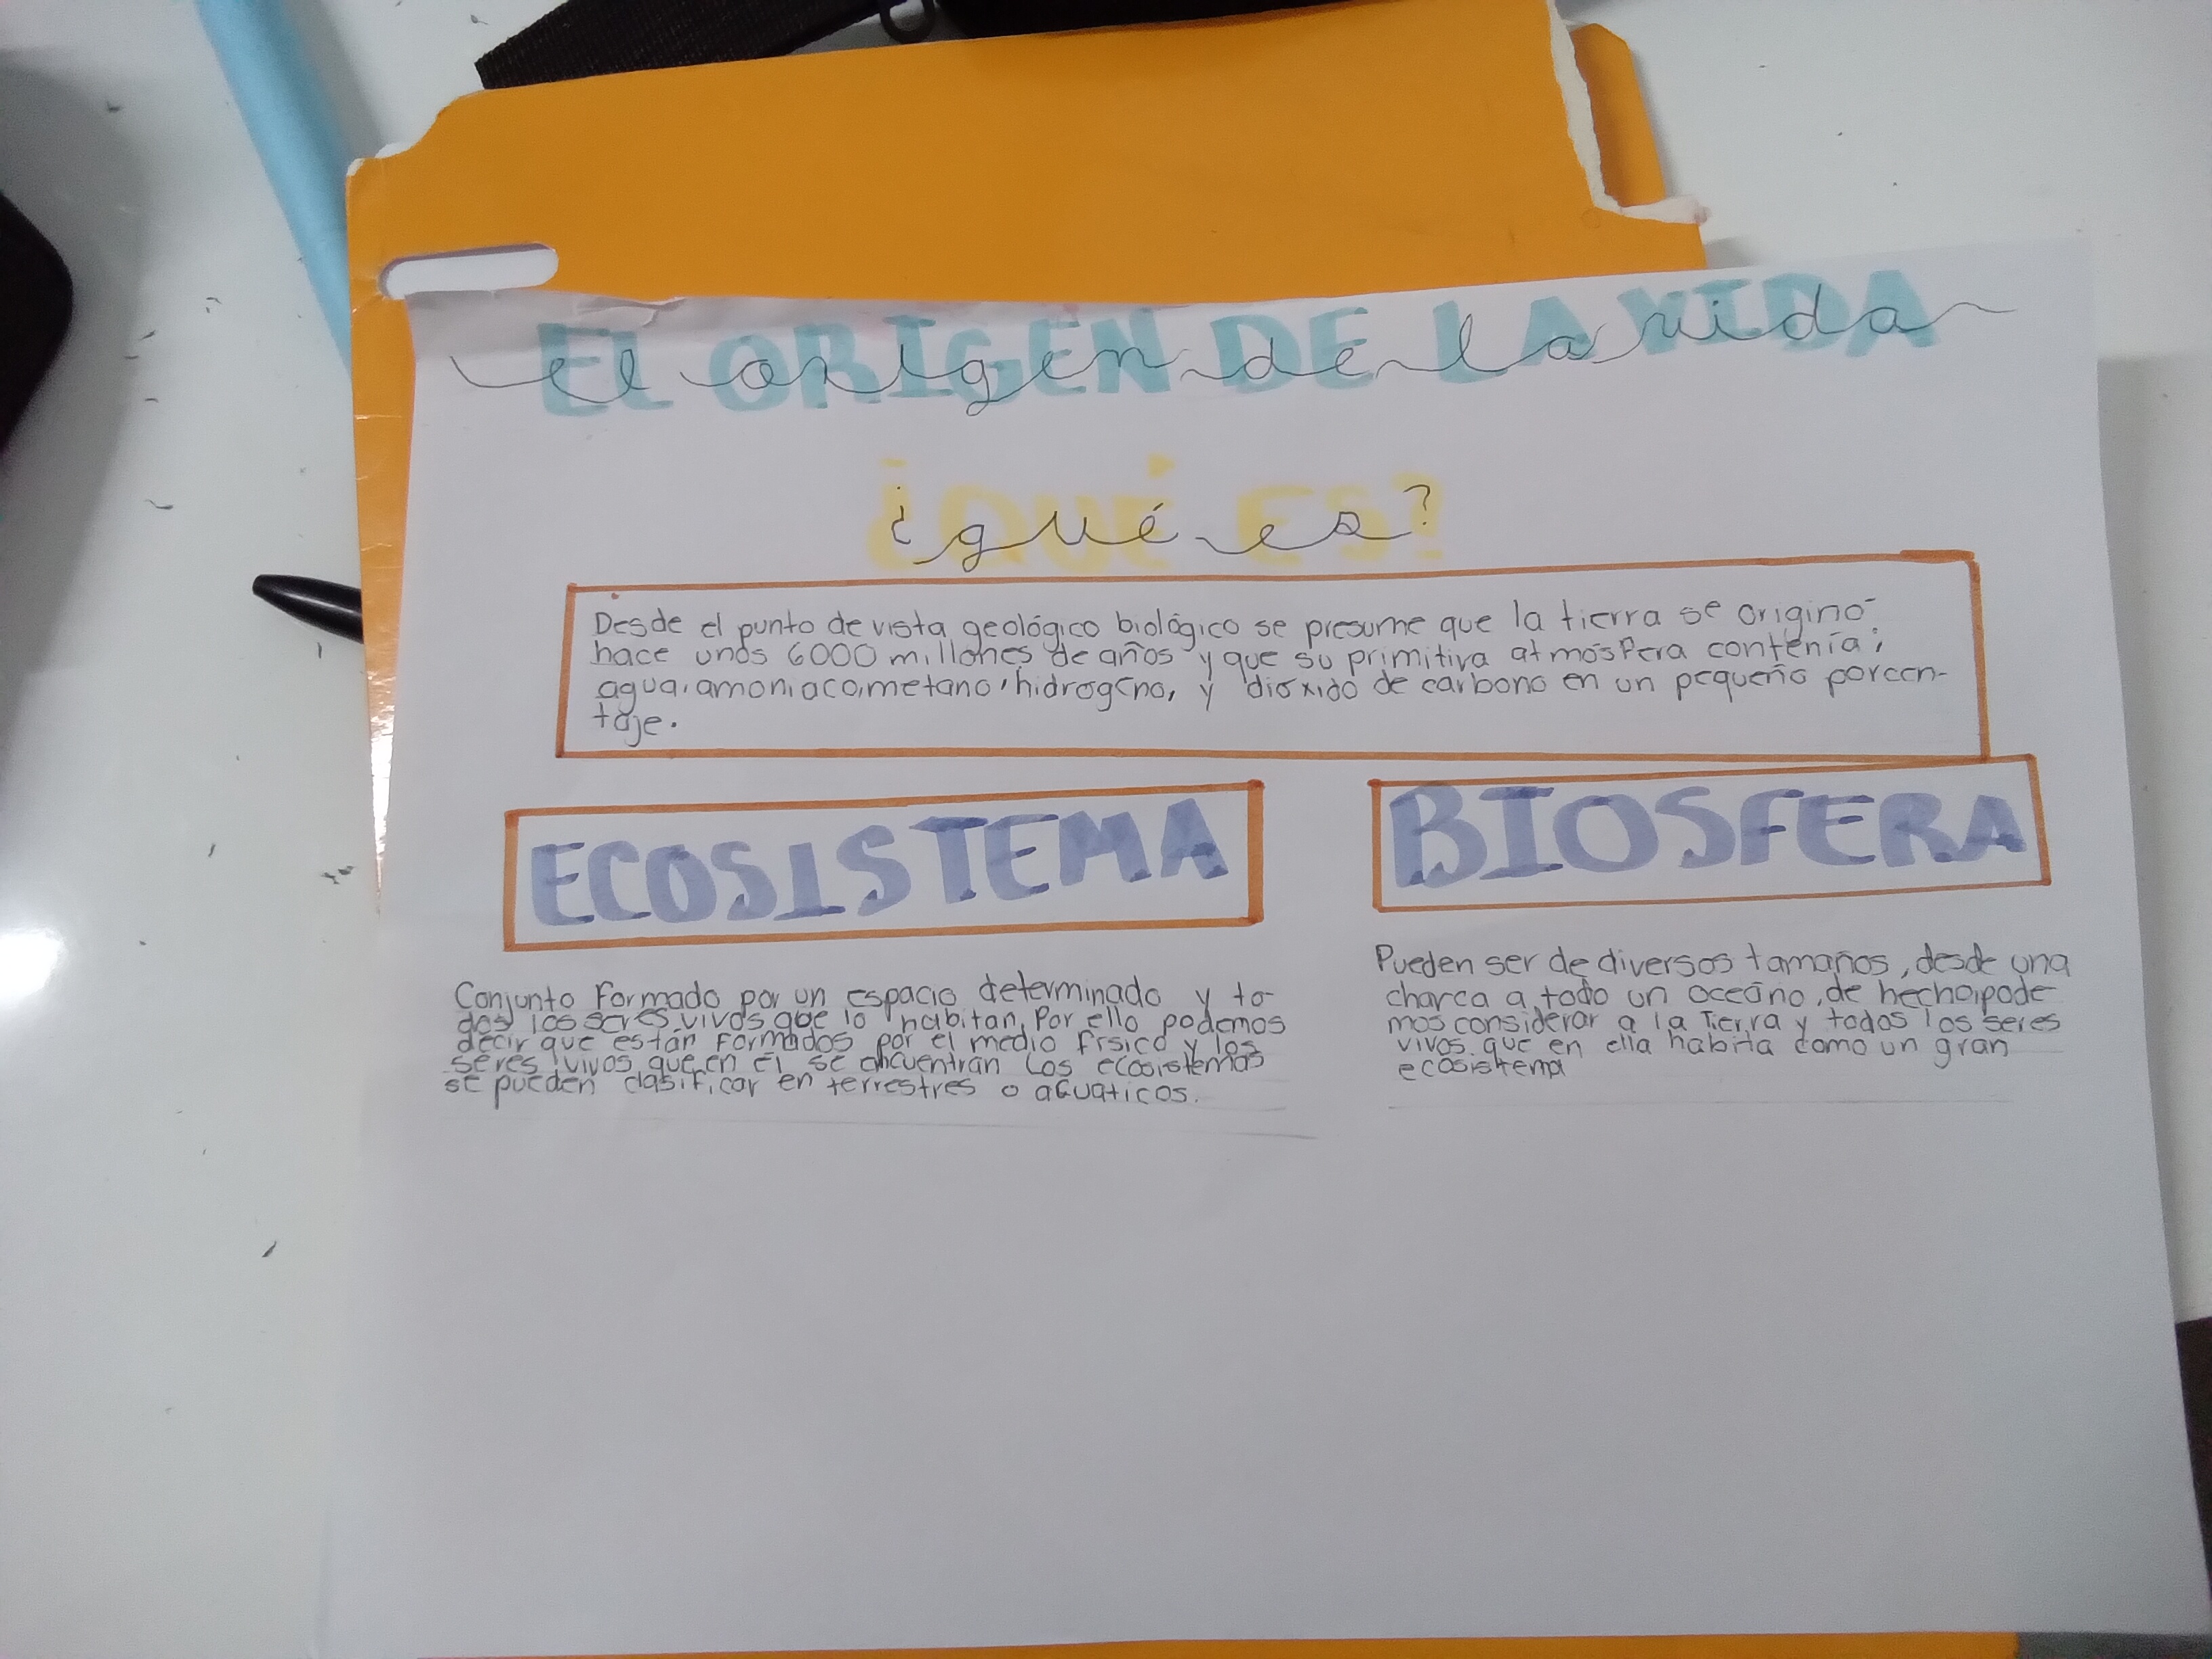 EL ORIGEN DE LA VIDA
el origen de la vida
¿QUÉ ES?
¿qué es?
Desde el punto de vista geológico biológico se presume que la tierra se origino
hace unos 6000 millones de años y que su primitiva atmósfera contenía;
agua, amoniaco, metano, hidrogeno, y dioxido de carbono en un pequeño porcen-
taje.
ECOSISTEMA
Conjunto formado por un espacio determinado y to-
dos los seres vivos que lo habitan, Por ello podemos
decir que están formados por el medio físico y los
seres vivos que en él se encuentran Los ecosistemas
se pueden clasificar en terrestres o acuaticos.
BIOSFERA
Pueden ser de diversos tamaños, desde una
charca a todo un oceano, de hecho, pode
mos considerar a la Tierra y todos los seres
vivos que en ella habita como un gran
ecosistema